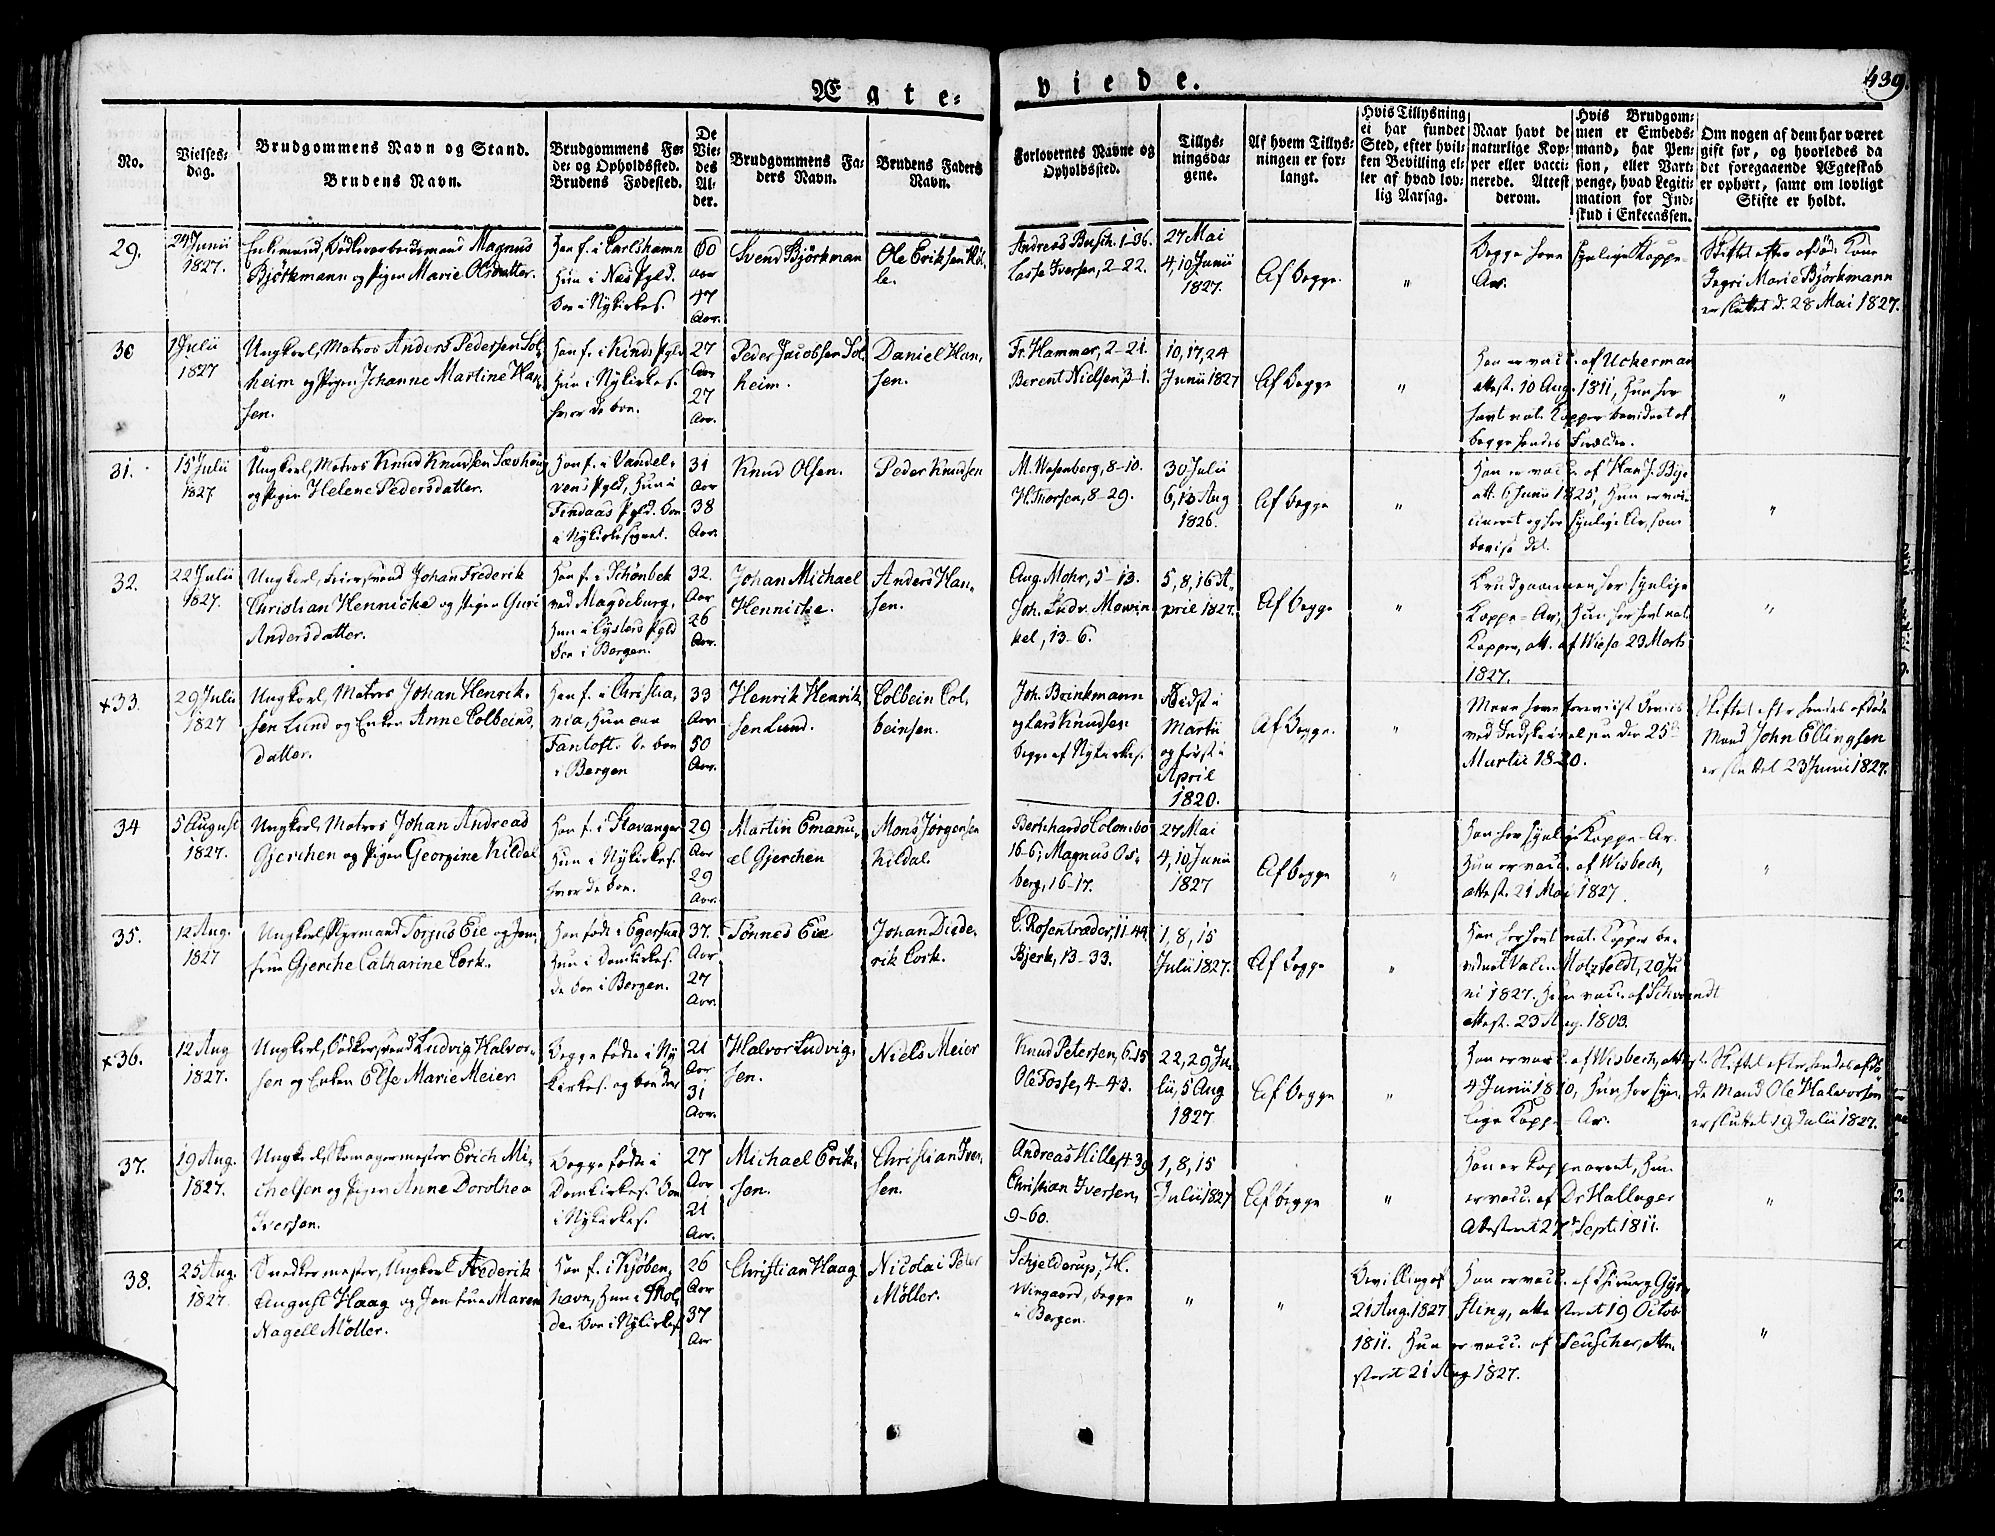 Ægte-
viede.
439.
No.
Vielses-
dag.
Brudgommens Navn og Stand.
Brudens Navn.
Brudgommens Fø-
de- og Opholdssted.
Brudens Fødested.
De
Vie-
des
Al-
der.
Brudgommens Fa-
ders Navn.
Brudens Faders
Navn.
Forlovernes Navne og
Opholdssted.
Tillys-
ningsda-
gene.
Af hvem Tillys-
ningen er for-
langt.
Hvis Tillysning
ei har fundet
Sted, efter hvil-
ken Bevilling el-
ler af hvad lov-
lig Aarsag.
Naar havt de
naturlige Kop-
per eller vacci-
nerede. Attest
derom.
Hvis Brudgom-
men er Embeds-
mand, har Pen-
sion, eller Vart-
penge, hvad Legiti-
mation for Ind-
skud i Enkecassen.
Om nogen af dem har været
gift før, og hvorledes da
det foregaaende Ægteskab
er ophørt, samt om lovligt
Skifte er holdt.
29.
24 Junii
1827.
Enkemand, Magnus
Björkmann og Pigen Marie Olsdatter.
Han f. i Carlshamn
Hun i Næs Pgld.
boe i Nykirkes.
60
Aar
47
Aar.
Svend Björkman
Ole Eriksen Röl-
le.
Andreas Busch. 1-36.
Lasse Iversen, 2-22.
27 Mai
4, 10 Junii
1827.
Af begge.
"
Begge have synlige Koppe-
Ar.
Skiftet efter afdöde Kone
Ingri Marie Björkmann
er sluttet d. 28 Mai 1827.
30
1 Julii
1827
Ungkarl, Matros Anders Pedersen Sol-
heim og Pigen Johanne Martine Han-
sen.
Han f. i Kinds Pgld
Hun i Nykirkes.
hvor de boe.
27
Aar
27
Aar.
Peder Jacobsen Sol-
heim.
Daniel Han-
sen.
Fr. Hammer, 2-21.
Berent Nielsen, 3-1.
10, 17, 24
Junii 1827
Af begge
"
Han er vacc. af Uckerman
attest. 10 Aug. 1811, Hun har
havt nat. Kopper bevidnet af
begge hendes Forældre.
"
31.
15 Julii
1827.
Ungkarl, Matros Knud Knudsen Sævhoug
og Pigen Helene Pedersdatter.
Han f. i Vandel-
vens Pgld, Hun i
Findaas Pgld. boe
i Nykirkesognet.
31
Aar
38
Aar.
Knud Olsen.
Peder Knudsen
M. Wesenberg, 8-10.
H. Thorsen, 8-29.
30 Julii
6, 13 Aug
1826.
Af begge
"
Han er vacc. af Han J. Bye
att. 6 Junii 1825, Hun er vac-
cineret og har synlige Ar, som
bevise det.
"
32.
22 Julii
1827.
Ungkarl, Johan Frederik
Christian Hennicke og Pigen Guri
Andersdatter.
Han f. i Schönbek
ved Magdeburg,
Hun i Lysters Pgld
boe i Bergen.
32.
Aar
26
Aar.
Johan Michael
Hennicke.
Anders Han-
sen.
Aug. Mohr, 5-13.
Joh. Ludv. Mowin-
kel, 13-6.
5, 8, 16 A-
pril 1827.
Af begge
"
Brudgommen har synlige
Koppe-Ar, Hun har havt nat.
Kopper, att. af Wiese 23 Marts
1827.
"
+33.
29 Julii
1827
Ungkarl, Matros Johan Henrik-
sen Lund og Enken Anne Colbeins-
datter.
Han f. i Christia-
nia, Hun paa
Fantoft. de boe
i Bergen
33
Aar
50
Aar.
Henrik Henrik-
sen Lund.
Colbein Col-
beinsen.
Joh. Brinkmann
og Lars Knudsen
begge af Nykirkes.
Sidst i
Martii
og først i
April
1820.
Af begge.
"
ved Indskrivelsen den 25de
Martii 1820.
Skiftet efter hendes afdöde
Mand John Ellingsen
er sluttet 23 Junii 1827.
34
5 August
1827.
Ungkarl, Matros Johan Andreas
Gjerchen og Pigen Georgine Kildal
Han f. i Stavanger
Hun i Nykirkes.
hvor de boe.
29
Aar
29
Aar.
Martin Emanu-
el Gjerchen
Mons Jørgensen
Kildal.
Bernhard Colombo
16-6, Magnus Os-
berg, 16-17.
27 Mai
4, 10 Junii
1827
Af begge
"
Han har synlige Koppe-Ar.
Hun er vacc. af Wisbech,
attest. 21 Mai 1827.
"
35.
12 Aug.
1827
Ungkarl, Styrmand Torjus Eie og Jom-
frue Gjerche Catharine Cork.
Han föde i Egersund
Hun i Domkirkes.
de boe i Bergen.
37.
Aar
27
Aar.
Tönnes Eie
Johan Diede-
rik Cork.
C. Rosentræder, 11-44
Bjerk, 13-33.
1, 8, 15
Julii 1827.
Af begge
"
Han har havt nat. Kopper be-
vidnet Valen. Motzfeldt, 20 Ju-
ni 1827. Hun vacc. af Schwindt
attest. 23 Aug. 1803.
+36.
12 Aug
1827.
Ungkarl, Bödkersvend Ludvig Halvor-
sen og Enken Else Marie Meier
Begge födte i Ny
kirkes. og boe der
21
Aar
31
Aar.
Halvor Ludvig-
sen.
Niels Meier
Knud Petersen, 6-15
Ole Fosse, 4-43.
22, 29 Ju-
lii, 5 Aug
1827
Af begge
"
Han er vacc. af Wisbech, att.
4 Junii 1810, Hun har syn-
lige Koppe Ar.
Skiftet efter hendes afdö-
de Mand Ole Halvorsen
er sluttet 19 Julii 1827.
37.
19 Aug.
1827.
Ungkarl, Skomagermester Erich Mi-
chelsen og Pigen Anne Dorothea
Iversen.
Begge födte i
Domkirkes. boe
i Nykirkes.
27
Aar
21
Aar.
Michael Erik-
sen.
Christian Iver-
sen.
Andreas Hille, 4-39
Christian Iversen,
9-60.
1, 8, 15
Julii 1827
Af begge
"
Han er Koppearret, Hun
er vacc. af Dr Hallager
Attesteret 27 Sept. 1811.
"
38.
25 Aug.
1827.
Snedkermester, Ungkarl Frederik
August Haag og Jomfrue Maren
Nagell Møller.
Han f. i Kjöben-
havn, Hun i Mol-
de. boe i Nykirkes.
26
Aar
37
Aar
Christian Haag
Nicolai Peter
Møller.
Schjelderup, H.
Wingaard, begge
i Bergen.
"
"
Bevilling af
21 Aug. 1827
Han er vacc. af Chirurg Gyr-
sting, attesteret 19 Octob
1811. Hun er vacc. af Teuscher, Atte-
steret 21 Aug 1827.
"